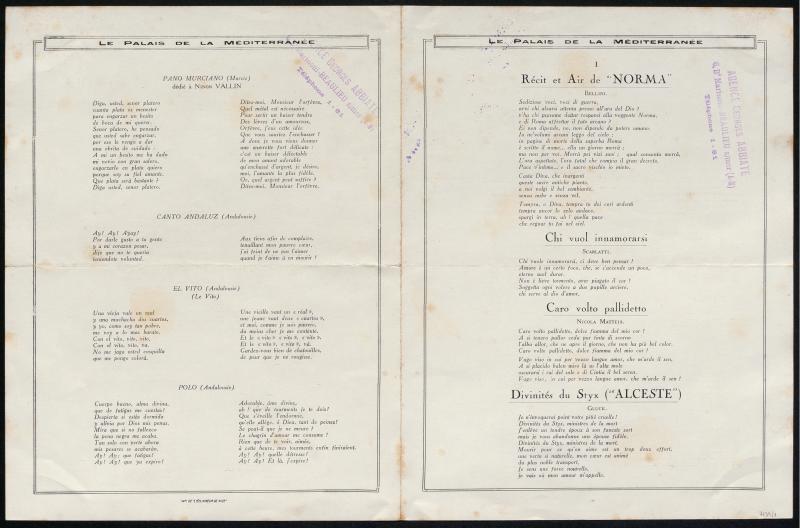 LE PALAIS DE LA MÉDITERRANÉE
PANO MURCIANO (Murcie)
dédié à NINON VALLIN
Diga, usted, senor platero
cuanta plata es menester
para engarzar un besito
de boca de mi querer.
Senor platero, he pensado
que usted sabe engarzar;
por eso le vengo a dar
una obrita de cuidado :
A mi un besito me ha dado
mi novia con gran salero,
engarzarle en plata quiero
porque soy su fiel amante.
Que plata será bastante ?
Diga usted, senor platero.
Dites-moi, Monsieur l'orfèvre,
Quel métal est nécessaire
Pour sertir un baiser tendre
Des lèvres d'un amoureux.
Orfèvre, j'eus cette idée
Que vous sauriez l'enchasser !
A donc je vous viens donner
une œuvrette fort délicate :
c'est un baiser délectable
de mon amant adorable
qu'enchassé d'argent, je désire,
moi, l'amante la plus fidèle.
Or, quel argent peut suffire ?
Dites-moi, Monsieur l'orfèvre.
CANTO ANDALUZ (Andalousie)
Ay! Ay! Ayay!
Por darle gusto a tu gente
y a mi corazon pesar,
dije que no te queria
teniendote voluntad.
Aux tiens afin de complaire,
tenaillant mon pauvre cœur,
j'ai feint de ne pas t'aimer
quand je t'aime à en mourir !
EL VITO (Andalousie)
(Le Vito)
Una vieja vale un real
y una muchacha dos cuartos,
y yo, como soy tan pobre,
me voy a lo mas barato.
Con el vito, vito, vito,
Con el vito, vito, va.
No me jaga usted cosquilla
que me pongo colorá.
Une vieille vaut un « réal »,
une jeune vaut deux « cuartos »,
et moi, comme je suis pauvre,
du moins cher je me contente.
Et le « vito » « vito », « vito »,
Et le « vito », « vito », va.
Gardez-vous bien de chatouilles,
de peur que je ne rougisse.
POLO (Andalousie)
Cuerpo bueno, alma divina,
que de fatigas me cuestas!
Despierta si estás dormida
y alivia por Dios mis penas.
Mira que si no fallezco
la pena negra me acaba.
Tan solo con verte ahora
mis pesares se acabarán.
Ay! Ay; que fatigas!
Ay! Ay! que ya expiro!
Adorable, âme divine,
ah ! que de tourments je te dois!
Que s'éveille l'endormie,
qu'elle allège, ô Dieu, tant de peines!
Se peut-il que je ne meure ?
Le chagrin d'amour me consume !
Rien que de te voir, aimée,
à cette heure, mes tourments enfin finiraient.
Ay! Ay! quelle détresse!
Ay! Ay! Et là, j'expire!
AGENCE GEORGES ABBIATE
LE PALAIS DE LA MÉDITERRANÉE
I
Récit et Air de "NORMA"
BELLINI.
Sediziose voci, voci di guerra,
avvi chi alzarsi attenta presso all'ara del Dio !
v'ha chi presume dettar responsi alla veggente Norma,
e di Roma affrettar il fato arcano ?
Ei non dipende, no, non dipende da potere umano.
Io ne'volumi arcani leggo del cielo ;
in pagine di morte della superba Roma
è scritto il nome... ella un giorno morrà ;
ma non per voi. Morrà pei vizi suoi ; qual consunta morrà,
L'ora aspettate, l'ora fatal che compia il gran decreto.
Pace v'intimo... e il sacro vischio io mieto.
Casta Diva, che inargenti
queste sacre antiche piante,
a noi volgi il bel sembiante,
senza nube e senza vel.
Tempra, o Diva, tempra tu dei cori ardenti
tempra ancor lo zelo audace,
spargi in terra, ah ! quella pace
che regnar tu fai nel ciel.
Chi vuol innamorarsi
SCARLATTI.
Chi vuole innamorarsi, ci deve ben pensar !
Amore è un certo foco, che, se s'accende un poco,
eterno suol durar.
Non è lieve tormento, aver piagato il cor !
Soggetta ogni volere a due pupille arciere,
chi serve al dio d'amor.
Caro volto pallidetto
NICOLA MATTEIS.
Caro volto pallidetto, dolce fiamma del mio cor !
A si tenero pallor ceda pur finto di scorno
l'alba allor, che ne apre il giorno, che non ha più bel color.
Caro volto pallidetto, dolce fiamma del mio cor !
Vago viso in cui per vezzo langue amor, che m'arde il sen,
A si placido balen miro là su l'alta mole
oscurarsi i rai del sole e di Cintia il bel seren.
Vago viso, in cui per vezzo langue amor, che m'arde il sen !
Divinités du Styx ("ALCESTE")
GLUCK.
Je n'invoquerai point votre pitié cruelle !
Divinités du Styx, ministres de la mort
J'enlève un tendre époux à son funeste sort
mais je vous abandonne une épouse fidèle.
Divinités du Styx, ministres de la mort,
Mourir pour ce qu'on aime est un trop doux effort,
une vertu si naturelle, mon cœur est animé
du plus noble transport,
Je sens une force nouvelle,
je vais où mon amour m'appelle.
AGENCE GEORGES ABBIATE